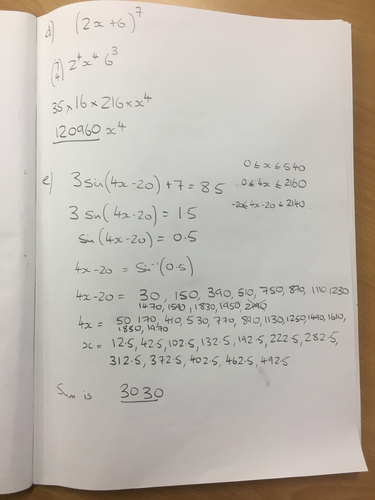 d) (2x+6)^7
(7 4) 2^4 x^4 6^3
35 x 16 x 216 x x^4
120960 x^4
e) 3 sin(4x-20) + 7 = 8.5
0 ≤ x ≤ 540
0 ≤ 4x ≤ 2160
-20 ≤ 4x-20 ≤ 2140
3 sin(4x-20) = 1.5
sin(4x-20) = 0.5
4x-20 = Sin^-1(0.5)
4x-20 = 30, 150, 390, 510, 750, 870, 1110 1230
1470, 1590, 1830, 1950,
4x = 50 170, 410, 530, 770, 890, 1130, 1250, 1490, 1610,
1850, 1970
x = 12.5, 42.5, 102.5, 132.5, 192.5, 222.5, 282.5,
312.5, 372.5, 402.5, 462.5, 492.5
Sum is 3030